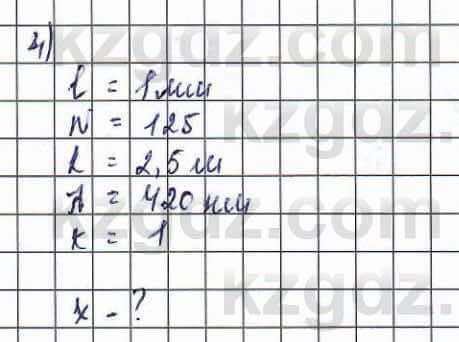 4)
l = 1 мм
N = 125
L = 2,5 м
λ = 420 нм
k = 1
x - ?
kzgdz.com
kzgdz.com
kzgdz.com